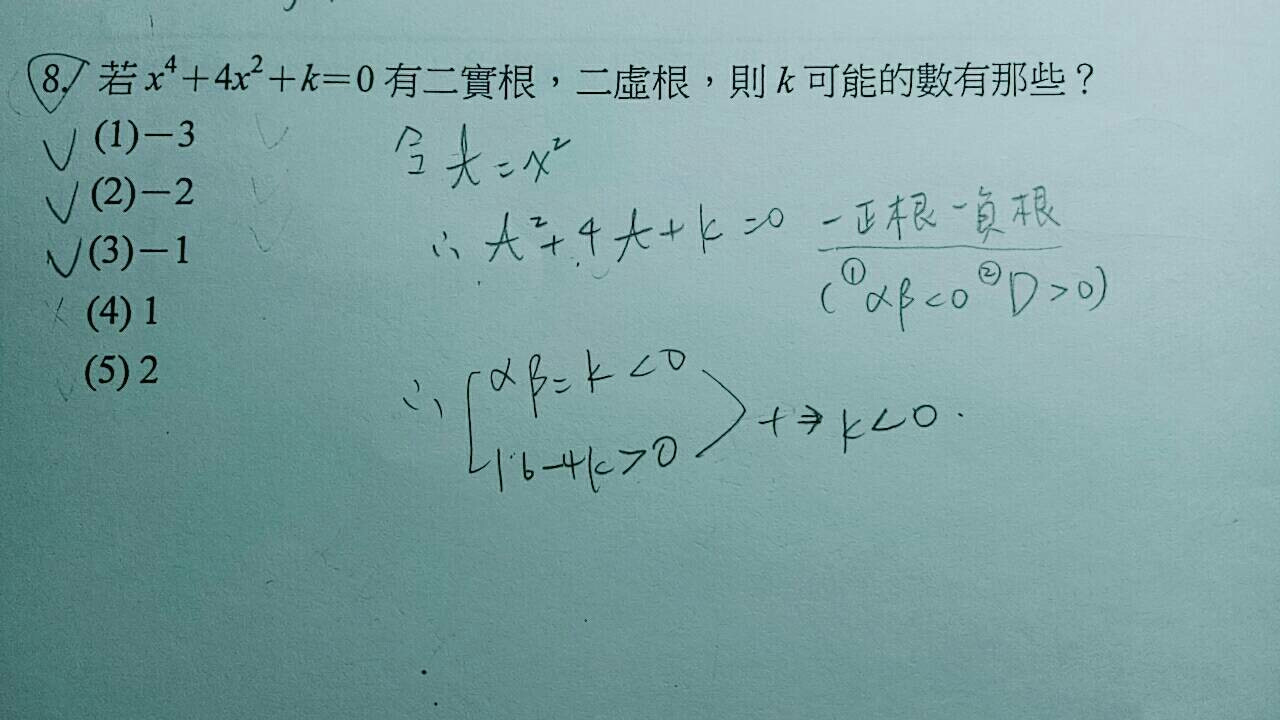 8. 若 x⁴+4x²+k=0 有二實根，二虛根，則 k 可能的數有那些？
(1)−3
(2)−2
(3)−1
(4) 1
(5) 2
令 t = x²
∴ t²+4t+k=0 一正根一負根
(①αβ<0 ②D>0)
∴ αβ=k<0
16−4k>0
+ ⇒ k<0.